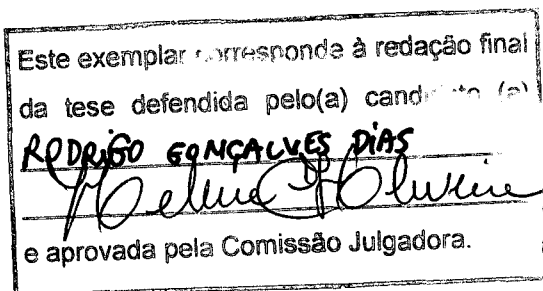 Este exemplar corresponde à redação final
da tese defendida pelo(a) candidato (a)
RODRIGO GONÇALVES DIAS
e aprovada pela Comissão Julgadora.